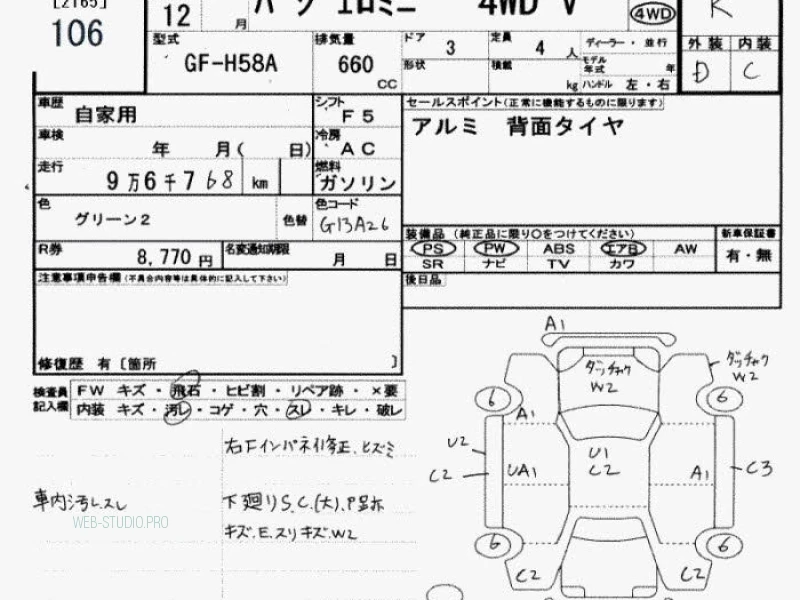 [2165]
106
12 月
パジェロミニ 4WD V
4WD
R
型式 GF-H58A
排気量 660 CC
ドア 3
定員 4 人
形状
積載 kg
ディーラー・並行
モデル年式 年
ハンドル 左・右
外装 内装
D C
車歴 自家用
シフト F5
車検 年 月( 日)
冷房 AC
走行 9万6千768 km
燃料 ガソリン
色 グリーン2
色替
色コード G13A26
R券 8,770円
名変通知期限 月 日
セールスポイント(正常に機能するものに限ります)
アルミ 背面タイヤ
装備品 (純正品に限り○をつけてください)
新車保証書
PS PW ABS エアB AW
有・無
SR ナビ TV カワ
後日品
注意事項申告欄(不具合内容等は具体的に記入して下さい)
修復歴 有〔箇所 〕
検査員記入欄
FW キズ・飛石・ヒビ割・リペア跡・×要
内装 キズ・汚レ・コゲ・穴・スレ・キレ・破レ
右Fインパネ修正.ヒズミ
車内汚レ.スレ
下廻りS.C.(大).
キズ.E.スリキズ.W2
WEB-STUDIO.PRO
A1
W2
W2
6
6
A1
U2
C2
UA1
U1
C2
A1
C3
6
6
C2
C2